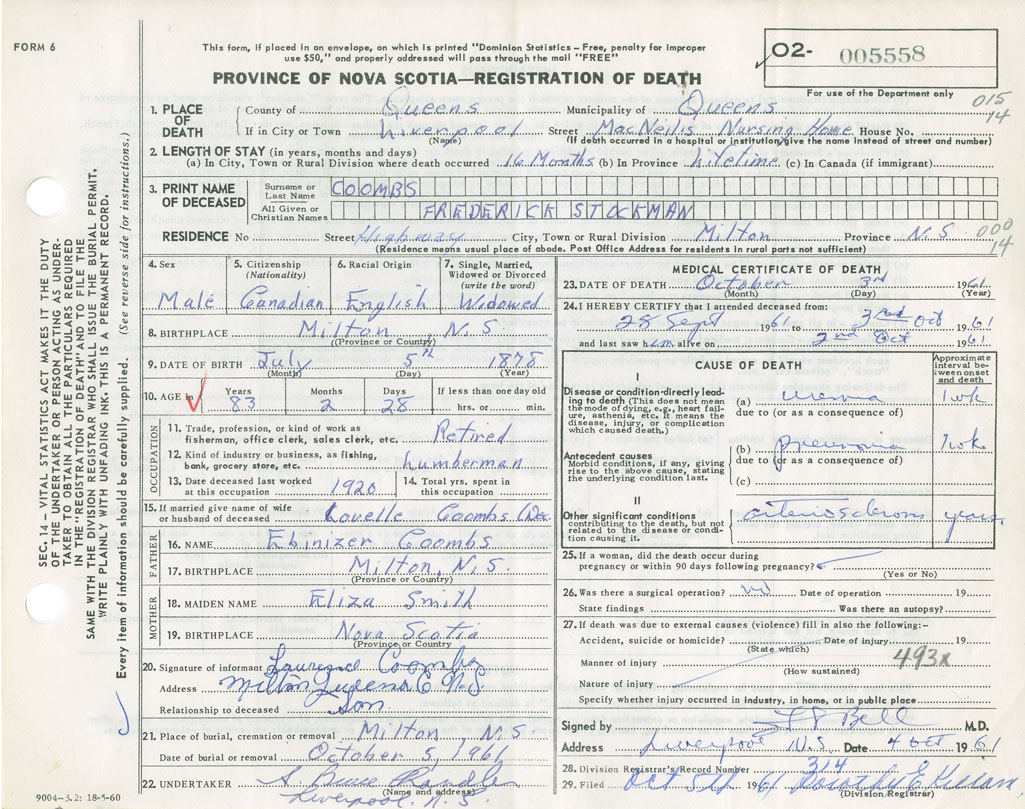 FORM 6
This form, if placed in an envelope, on which is printed "Dominion Statistics – Free, penalty for improper
use $50," and properly addressed will pass through the mail "FREE"
PROVINCE OF NOVA SCOTIA—REGISTRATION OF DEATH
O2- 005558
For use of the Department only
015
14
1. PLACE OF DEATH County of Queens Municipality of Queens
If in City or Town Liverpool Street MacNeil's Nursing Home House No.
(Name) (If death occurred in a hospital or institution, give the name instead of street and number)
2. LENGTH OF STAY (in years, months and days)
(a) In City, Town or Rural Division where death occurred 16 Months (b) In Province Lifetime (c) In Canada (if immigrant)
3. PRINT NAME OF DECEASED Surname or Last Name COOMBS
All Given or Christian Names FREDERICK STOCKMAN
000
14
RESIDENCE No Street Highway City, Town or Rural Division Milton Province N.S
(Residence means usual place of abode. Post Office Address for residents in rural parts not sufficient)
4. Sex Male
5. Citizenship (Nationality) Canadian
6. Racial Origin English
7. Single, Married, Widowed or Divorced (write the word) Widowed
8. BIRTHPLACE Milton N.S.
(Province or Country)
9. DATE OF BIRTH July 5th 1878
(Month) (Day) (Year)
10. AGE in Years 83 Months 2 Days 28 If less than one day hrs. or min.
OCCUPATION
11. Trade, profession, or kind of work as
fisherman, office clerk, sales clerk, etc. Retired
12. Kind of industry or business, as fishing,
bank, grocery store, etc. Lumberman
13. Date deceased last worked
at this occupation 1920
14. Total yrs. spent in
this occupation
15. If married give name of wife
or husband of deceased Lovelle Coombs (Dec.
FATHER
16. NAME Ebinizer Coombs
17. BIRTHPLACE Milton, N.S.
(Province or Country)
MOTHER
18. MAIDEN NAME Eliza Smith
19. BIRTHPLACE Nova Scotia
(Province or Country)
20. Signature of informant Coombs
Address Milton Queens C N.S.
Relationship to deceased Son
21. Place of burial, cremation or removal Milton N.S.
Date of burial or removal October 5, 1961
22. UNDERTAKER S. Bruce Chandler
(Name and address)
Liverpool, N.S.
9004-3.2: 18-5-60
MEDICAL CERTIFICATE OF DEATH
23. DATE OF DEATH October 3rd 1961
(Month) (Day) (Year)
24. I HEREBY CERTIFY that I attended deceased from:
28 Sept 1961 to 3rd Oct 1961
and last saw him alive on 2nd Oct 1961
CAUSE OF DEATH
Approximate interval between onset and death
I
Disease or condition directly lead-
ing to death (This does not mean
the mode of dying, e.g., heart failure, asthenia, etc. It means the
disease, injury, or complication
which caused death.)
(a) uremia 1 wk
due to (or as a consequence of)
Antecedent causes
Morbid conditions, if any, giving
rise to the above cause, stating
the underlying condition last.
(b) pneumonia 1 wk
due to (or as a consequence of)
(c)
II
Other significant conditions
contributing to the death, but not
related to the disease or condi-
tion causing it.
arteriosclerosis years
25. If a woman, did the death occur during
pregnancy or within 90 days following pregnancy?
(Yes or No)
26. Was there a surgical operation? no Date of operation 19
State findings Was there an autopsy?
27. If death was due to external causes (violence) fill in also the following:-
Accident, suicide or homicide? Date of injury 19
(State which)
493x
Manner of injury
(How sustained)
Nature of injury
Specify whether injury occurred in industry, in home, or in public place
Signed by Bell M.D.
Address Liverpool N.S. Date 4 Oct 1961
28. Division Registrar's Record Number 314
29. Filed Oct 5th 1961 Dorothy E
(Division Registrar)
SEC. 14 – VITAL STATISTICS ACT MAKES IT THE DUTY
OF THE UNDERTAKER OR PERSON ACTING AS UNDER-
TAKER TO OBTAIN ALL THE PARTICULARS REQUIRED
IN THE "REGISTRATION OF DEATH" AND TO FILE THE
SAME WITH THE DIVISION REGISTRAR WHO SHALL ISSUE THE BURIAL PERMIT.
WRITE PLAINLY WITH UNFADING INK. THIS IS A PERMANENT RECORD.
Every item of information should be carefully supplied. (See reverse side for instructions.)